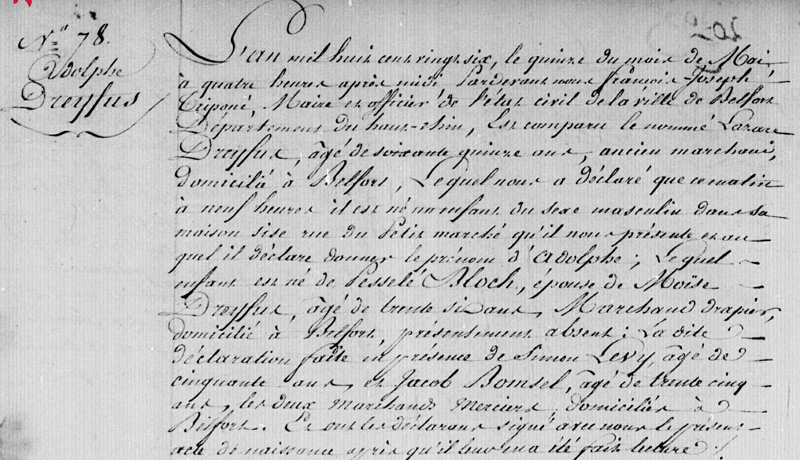 N° 78.
Adolphe
Dreyfus
L'an mil huit cent vingt six, le quinze du mois de Mai,
à quatre heures après midi Pardevant nous François Joseph
Triponé, Maire et officier de l'état civil de la ville de Belfort
Département du haut-rhin, Est comparu le nommé Lazare
Dreyfus, âgé de soixante quinze ans, ancien marchand,
domicilié à Belfort, Lequel nous a déclaré que ce matin
à neuf heures il est né un enfant du sexe masculin dans sa
maison sise rue du Petit marché qu'il nous présente et au
quel il déclare donner le prénom d'Adolphe; Lequel
enfant est né de Pesselé Bloch, épouse de Moïse
Dreyfus, âgé de trente six ans, Marchand drapier,
domicilié à Belfort, présentement absent; La dite
déclaration faite en présence de Simon Levy, âgé de
cinquante ans et Jacob Bomsel, âgé de trente cinq
ans, les deux marchands merciers, domiciliés à
Belfort. Et ont les déclarans signé avec nous le présent
acte de naissance après qu'il leur en a été fait lecture./.